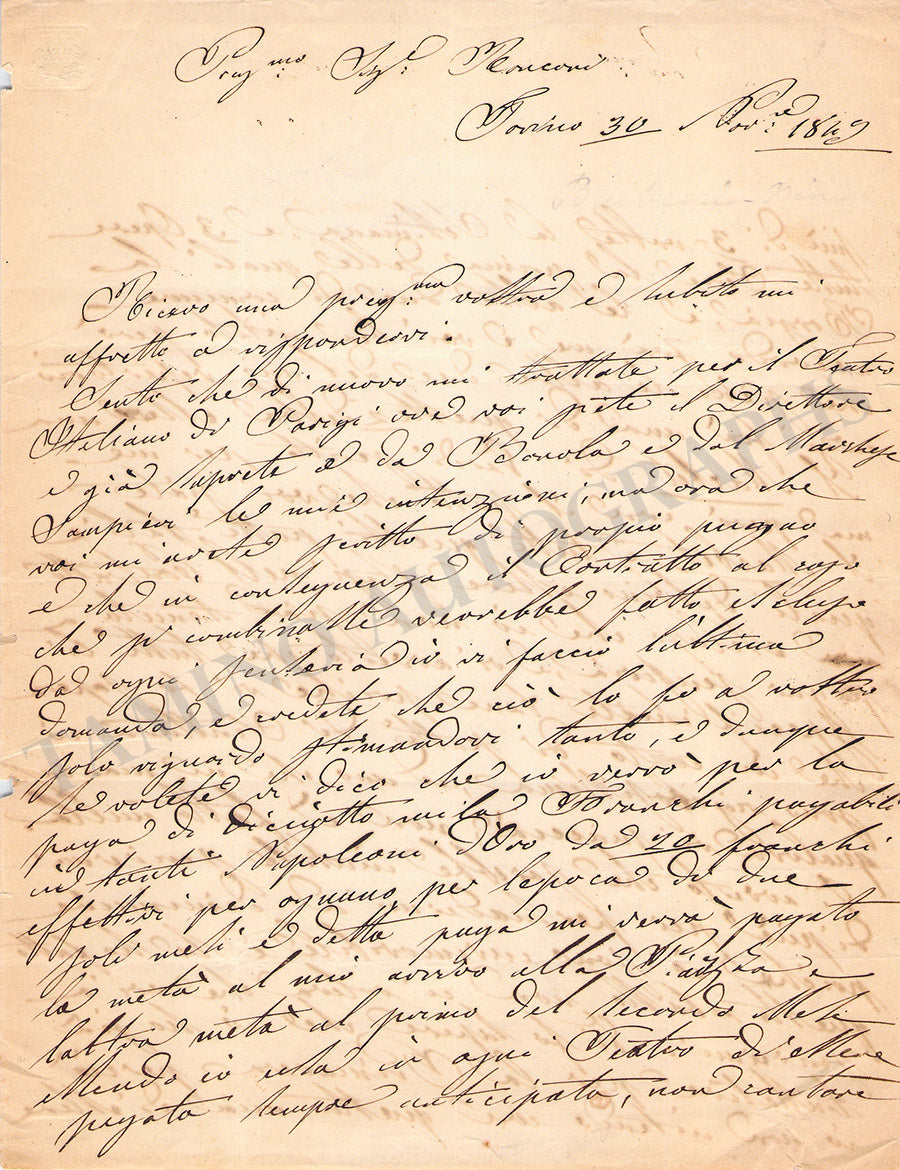 Preg.mo Sig.r Ronconi
Torino 30 Nov.re 1849
Ricevo una preg.ma vostra e subito mi
affretto a rispondervi.
Sento che di nuovo mi trattate per il Teatro
Italiano di Parigi ove voi siete il Direttore
e già saprete da Bonola e dal Marchese
Sampieri le mie intenzioni, ma ora che
voi mi avete scritto di proprio pugno
e che in conseguenza il Contratto al caso
che si combinasse verrebbe fatto escluso
da ogni senseria io vi faccio l'ultima
domanda, e credete che ciò lo fo a vostro
solo riguardo stimandovi tanto, e dunque
se volete vi dico che io verrò per la
paga di diciotto mila Franchi pagabili
in tanti Napoleoni d'Oro da 20 franchi
effettivi per ognuno, per l'epoca di due
soli mesi e detta paga mi verrà pagato
la metà al mio arrivo alla Piazza e
l'altra metà al primo del secondo Mese
essendo io usa in ogni Teatro di essere
pagata sempre anticipata, non cantare
TAMINO AUTOGRAPHS